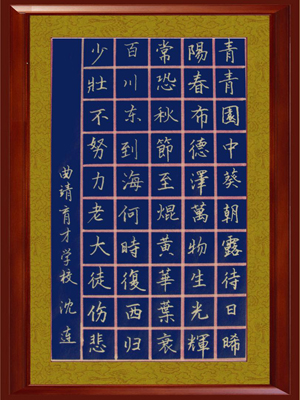 青青園中葵朝露待日晞
陽春布德澤萬物生光輝
常恐秋節至焜黃華葉衰
百川东到海何時復西归
少壯不努力老大徒伤悲
曲靖育才学校 沈连